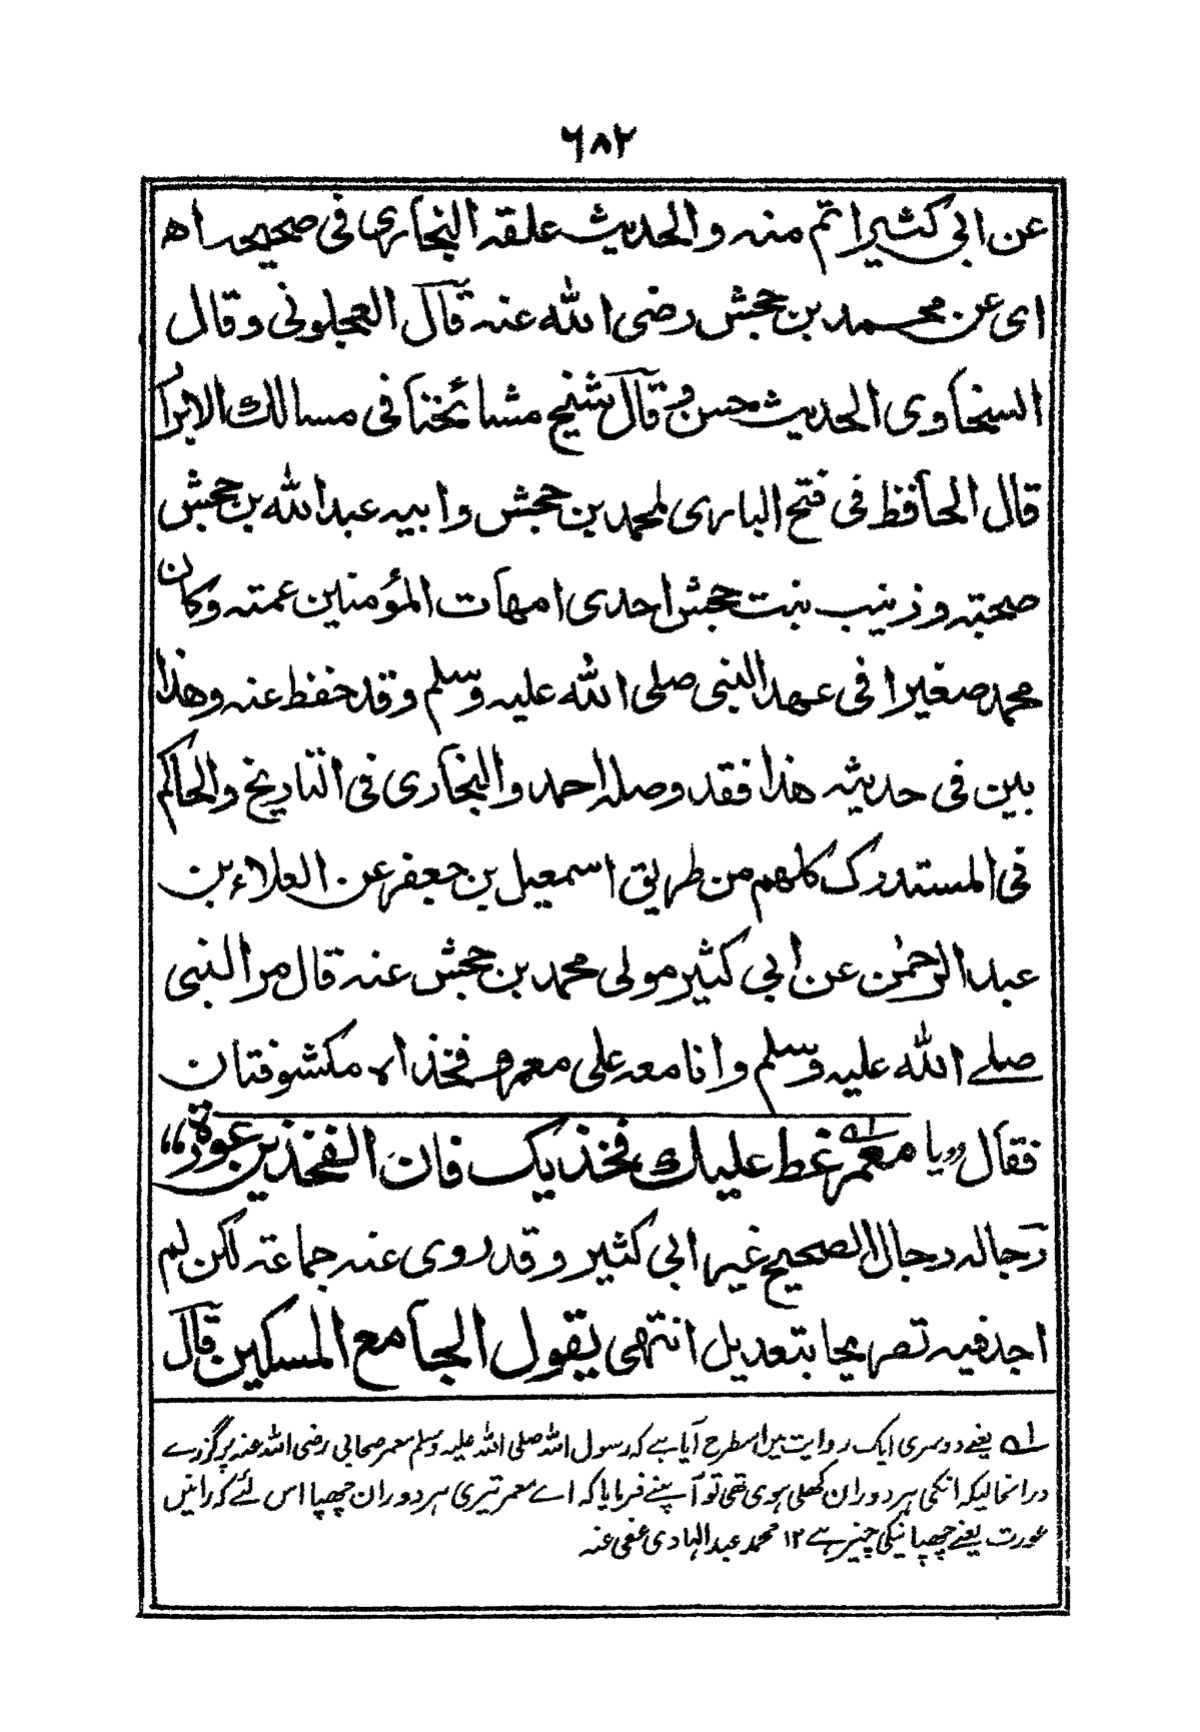 ٦٨٢
عن ابي كثير اتم منه والحديث علقه البخاري في صحيحه اه
اى عن محمد بن جحش رضى الله عنه قال العجلونى وقال
السخاوى الحديث حسن وقال شيخ مشائخنا فى مسالك الابرار
قال الحافظ فى فتح البارى لمحمد بن جحش وابيه عبد الله بن جحش
صحبته وزينب بنت جحش احدى امهات المؤمنين عمته وكان
محمد صغيرا فى عهد النبى صلى الله عليه وسلم وقد حفظ عنه وهذا
بين فى حديثه هذا فقد وصله احمد والبخارى فى التاريخ والحاكم
فى المستدرك كلهم من طريق اسمعيل بن جعفر عن العلاء بن
عبد الرحمٰن عن ابي كثير مولى محمد بن جحش عنه قال مر النبى
صلے الله عليه وسلم وانا معه على معمر وفخذاه مكشوفتان
فقال «يا معمر غط عليك فخذيك فان الفخذين عورة»
رجاله رجال الصحيح غير ابي كثير وقد روى عنه جماعة لكن لم
اجد فيه تصريحا بتعديل انتهى يقول الجامع المسكين قال
لـه یعنے دوسری ایک روایت میں اسطرح آیا ہے کہ رسول اللہ صلی اللہ علیہ وسلم معمر صحابی رضی اللہ عنہ پر گزرے
درانحالیکہ انکی ہر دو ران کھلی ہوی تھی تو آپنے فرمایا کہ اے معمر تیری ہر دو ران چھپا اس لئے کہ رانیں
عورت یعنے چھپانیکی چیز ہے ۱۲ محمد عبد الہادی عفی عنہ